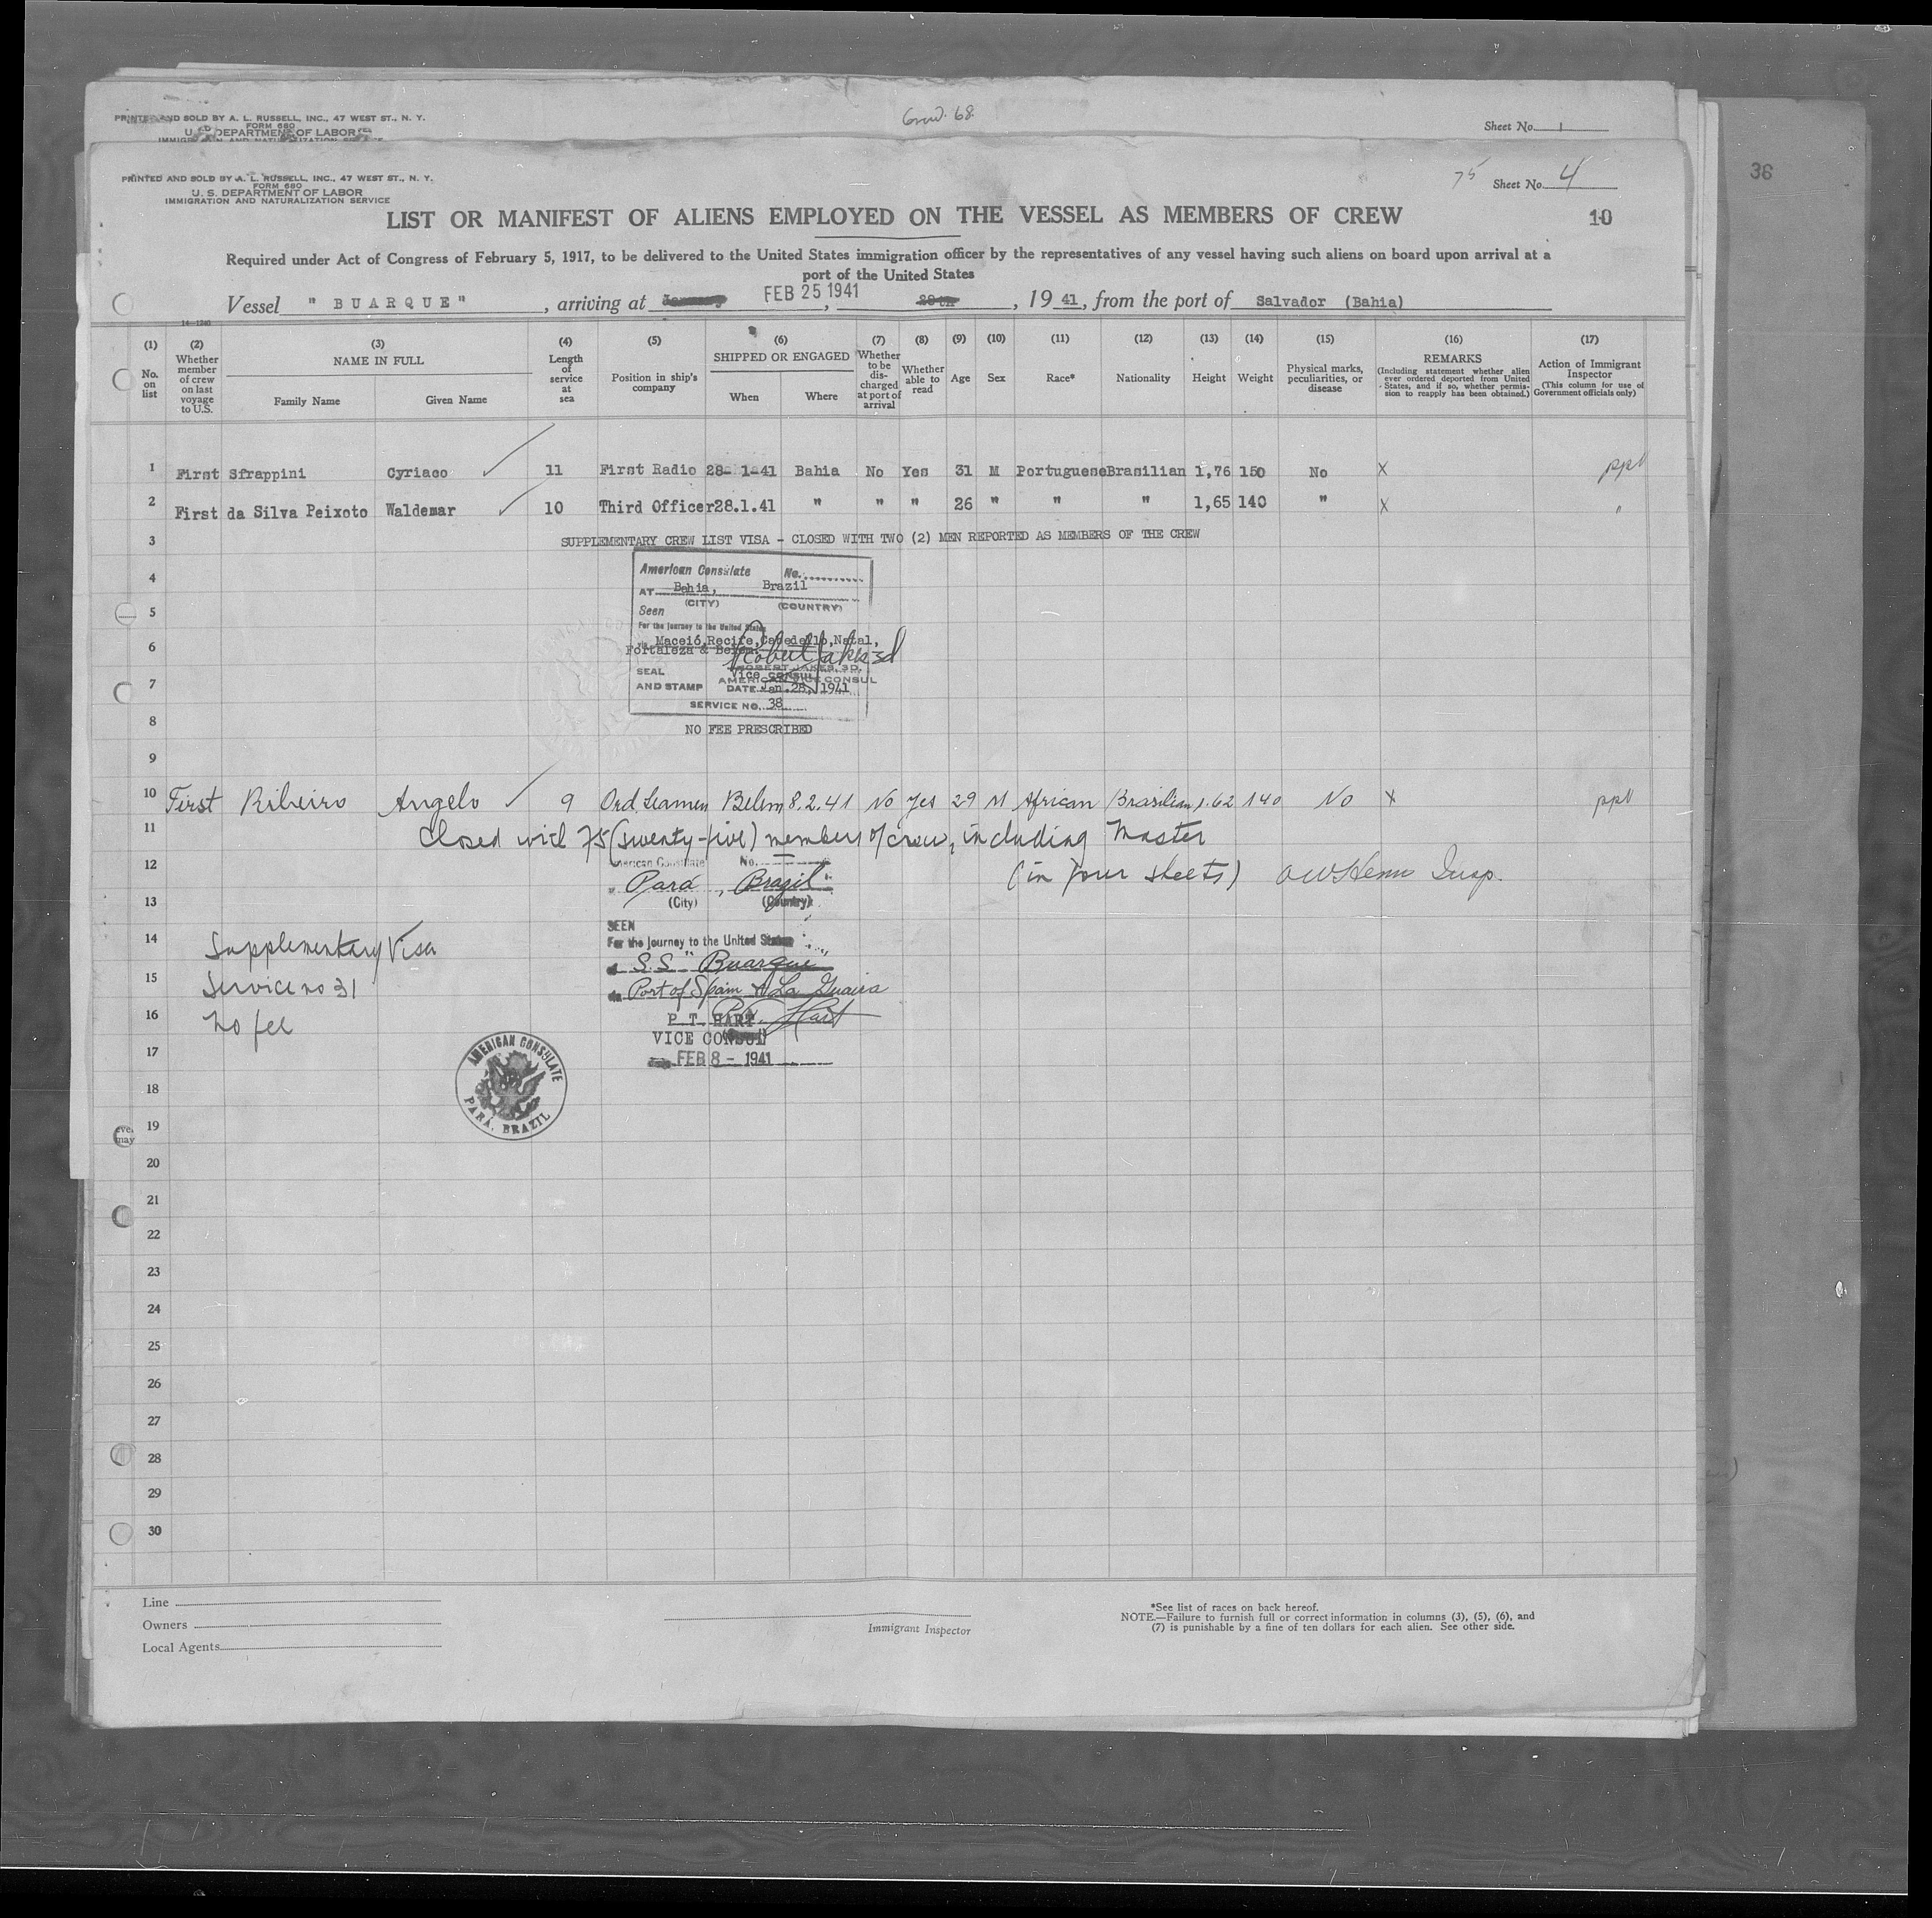 PRINTED AND SOLD BY A. L. RUSSELL, INC., 47 WEST ST., N. Y.
FORM 680
U. S. DEPARTMENT OF LABOR
Crew. 68
Sheet No. 1
36
PRINTED AND SOLD BY A. L. RUSSELL, INC., 47 WEST ST., N. Y.
FORM 680
U. S. DEPARTMENT OF LABOR
IMMIGRATION AND NATURALIZATION SERVICE
75 Sheet No. 4
LIST OR MANIFEST OF ALIENS EMPLOYED ON THE VESSEL AS MEMBERS OF CREW
10
Required under Act of Congress of February 5, 1917, to be delivered to the United States immigration officer by the representatives of any vessel having such aliens on board upon arrival at a
port of the United States
Vessel " BUARQUE" , arriving at January FEB 25 1941 , 28th , 19 41, from the port of Salvador (Bahia)
14-1240
(1) No. on list
(2) Whether member of crew on last voyage to U.S.
(3) NAME IN FULL
Family Name Given Name
(4) Length of service at sea
(5) Position in ship's company
(6) SHIPPED OR ENGAGED
When Where
(7) Whether to be discharged at port of arrival
(8) Whether able to read
(9) Age
(10) Sex
(11) Race*
(12) Nationality
(13) Height
(14) Weight
(15) Physical marks, peculiarities, or disease
(16) REMARKS
(Including statement whether alien ever ordered deported from United States, and if so, whether permission to reapply has been obtained.)
(17) Action of Immigrant Inspector
(This column for use of Government officials only)
1 First Sfrappini Cyriaco ✓ 11 First Radio 28- 1-41 Bahia No Yes 31 M Portuguese Brasilian 1,76 150 No X ppt
2 First da Silva Peixoto Waldemar ✓ 10 Third Officer 28.1.41 " " " 26 " " " 1,65 140 " X "
3 SUPPLEMENTARY CREW LIST VISA - CLOSED WITH TWO (2) MEN REPORTED AS MEMBERS OF THE CREW
4
American Consulate No.
AT Bahia, Brazil
(CITY) (COUNTRY)
5
Seen
For the journey to the United States
6
via Maceió,Recife,Cabedello,Natal,
Fortaleza & Belem.
Robert Jakes 3d
ROBERT JAKES, 3D.
SEAL Vice Consul
AMERICAN VICE CONSUL
7
AND STAMP DATE Jan. 28, 1941
SERVICE NO. 38
8
NO FEE PRESCRIBED
9
10 First Ribeiro Angelo ✓ 9 Ord Seamen Belem 8.2.41 No Yes 29 M African Brasilian 1.62 140 No X ppt
11 Closed with 75 (seventy-five) members of crew, including Master
12
American Consulate No.
(in four sheets) Insp.
Pará, Brazil
13
(City) (Country)
SEEN
14
For the journey to the United States
Supplementary Visa
S.S "Buarque"
15
Service no 31
via Port of Spain & La Guaira
16
No fee
P. T. Hart
P. T. HART
VICE CONSUL
17
FEB 8 - 1941
AMERICAN CONSULATE
PARÁ, BRAZIL
18
19
eve.
may
20
21
22
23
24
25
26
27
28
29
30
Line
Owners
Local Agents
Immigrant Inspector
*See list of races on back hereof.
NOTE.—Failure to furnish full or correct information in columns (3), (5), (6), and
(7) is punishable by a fine of ten dollars for each alien. See other side.